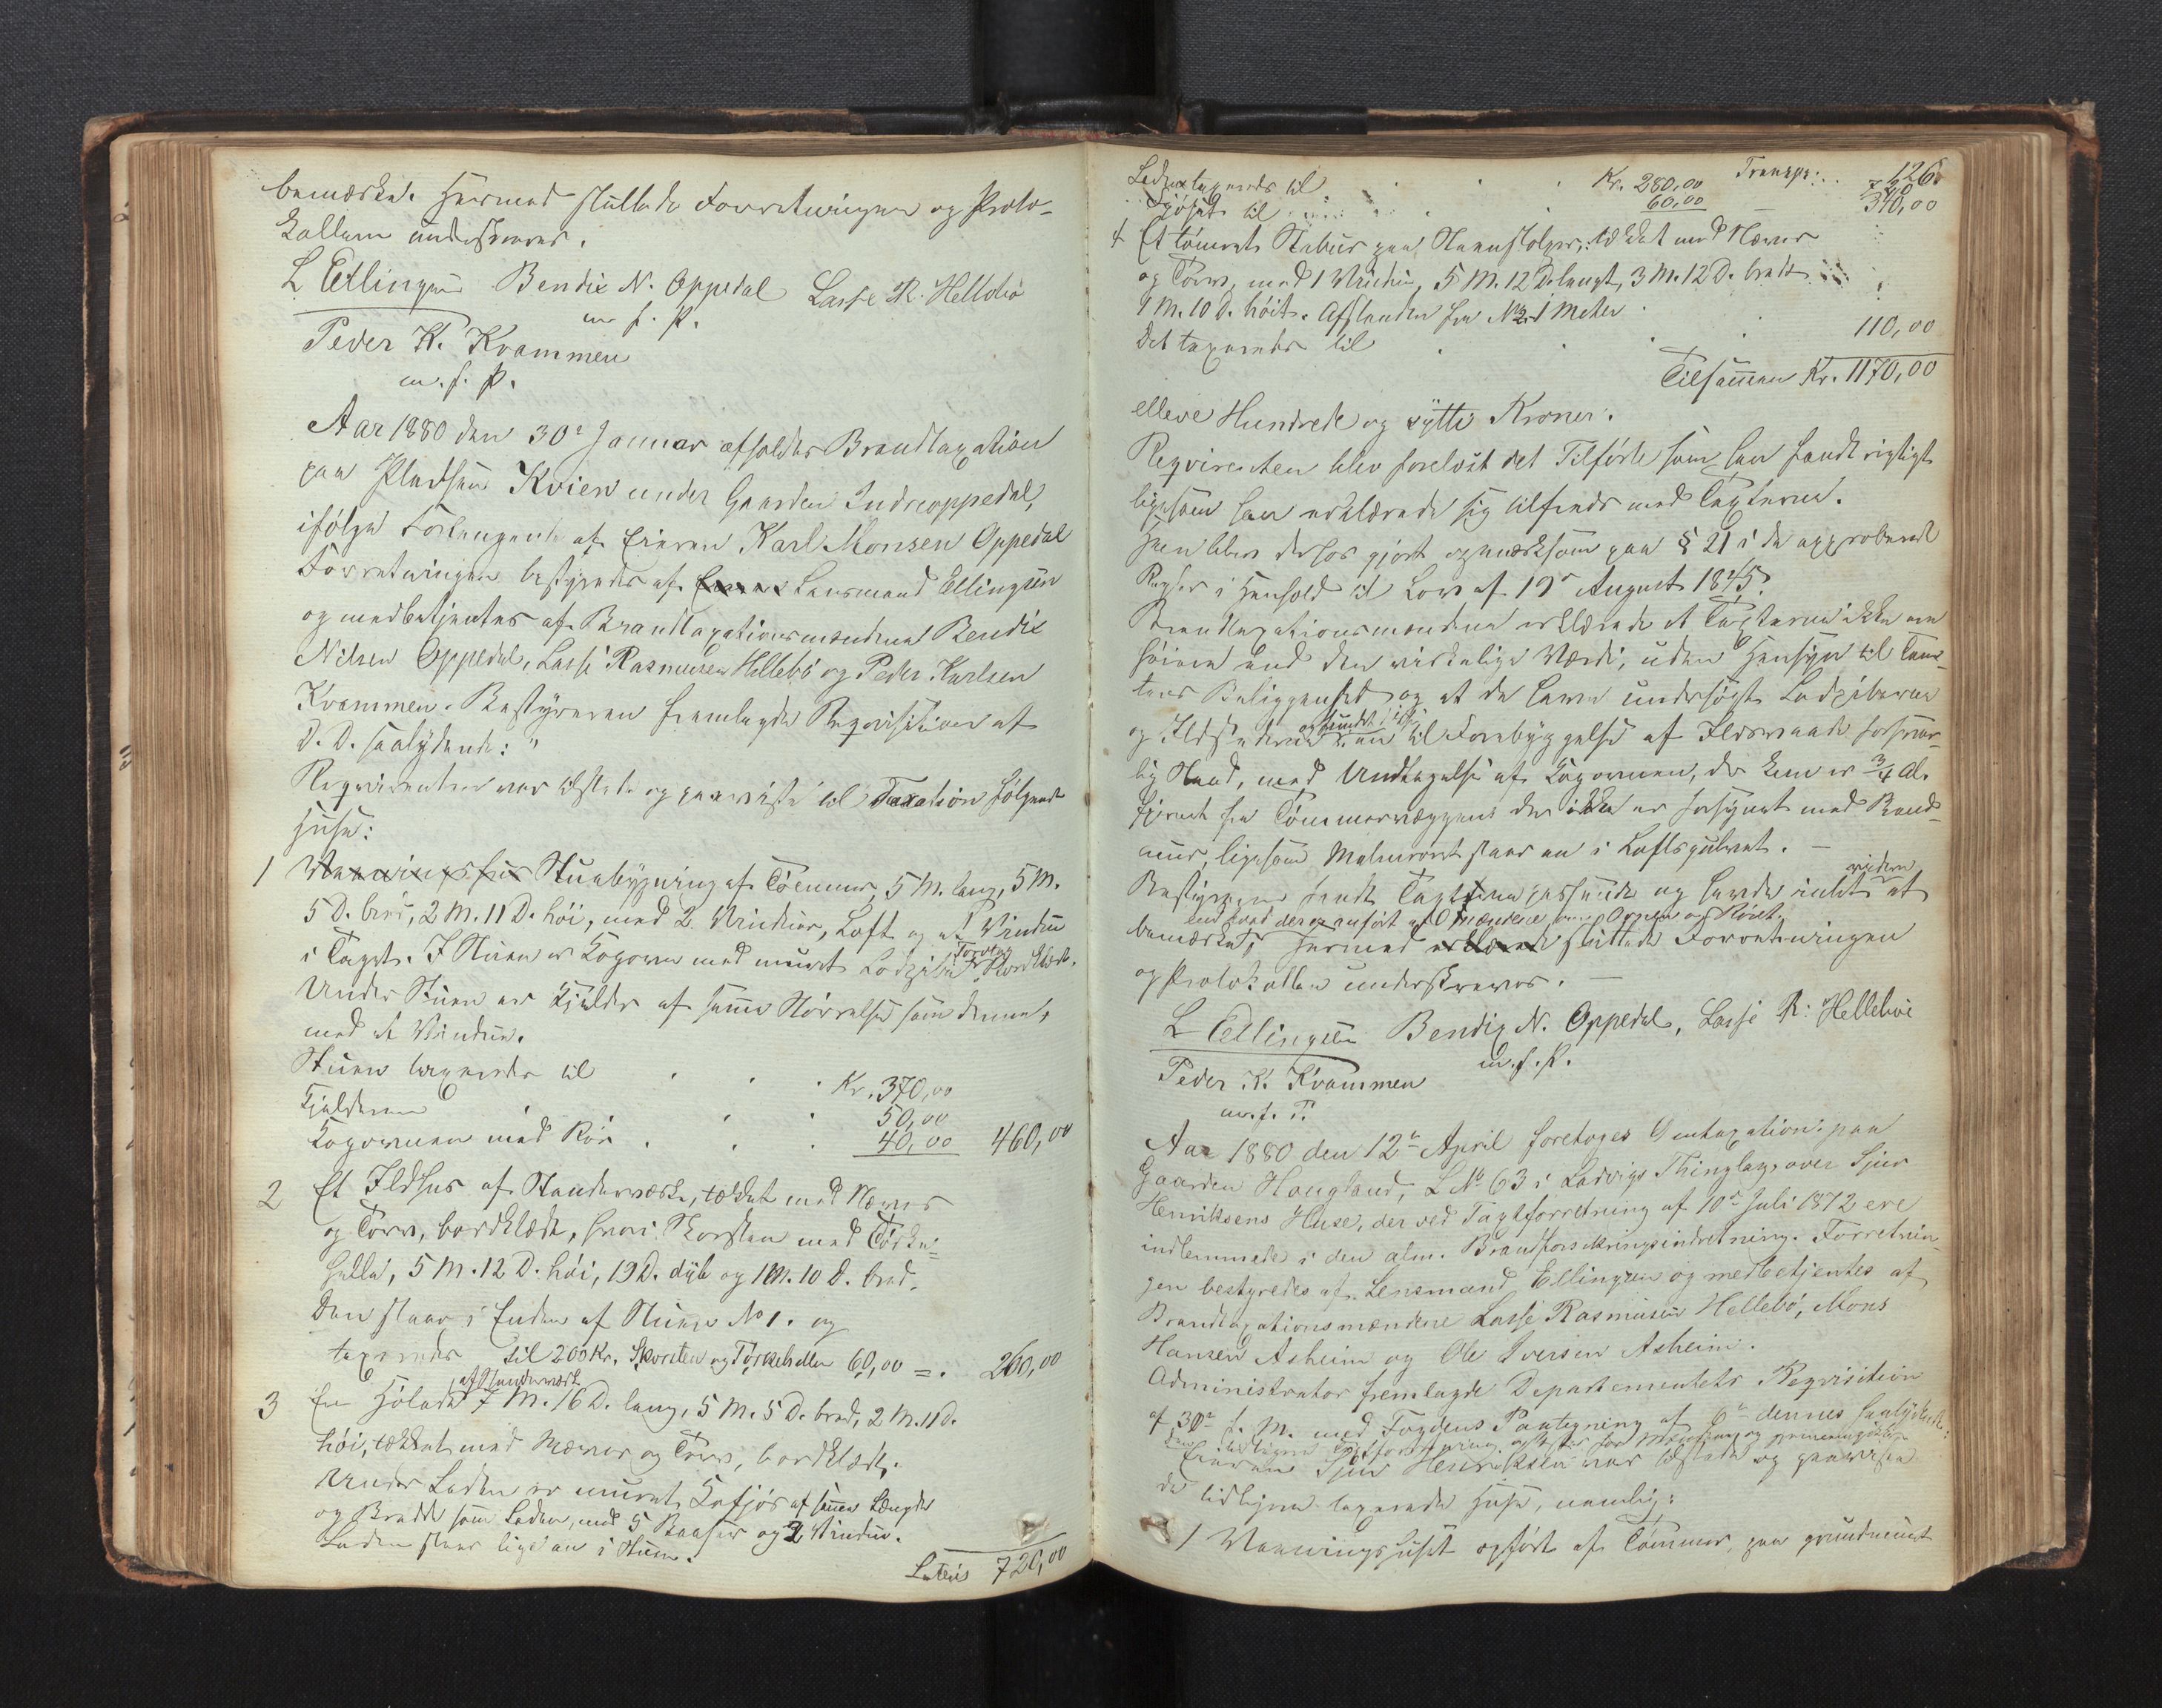 bemærke. Hermed sluttede Forretningen og Proto-
kollen underskreves.
L Ellingsen Bendix N. Oppedal Lasse R. Hellebø
m. f. P.
Peder K. Kvammen
m. f. P.
Aar 1880 den 30te Januar afholdtes Brandtaxation
paa Pladsen Kvien under Gaarden Indreoppedal,
ifølge Forlangende af Eieren Karl Monsen Oppedal
Forretningen bestyredes af Lensmand Ellingsen
og medbetjentes af Brandtaxationsmændene Bendix
Nilsen Oppedal, Lasse Rasmusen Hellebø og Peder Karlsen
Kvammen. Bestyreren fremlagde Reqvisitionen af
D. D. saalydende: "
Reqvirenten var tilstede og paaviste til Taxation følgende
Huse:
1 Vaaningshus Stuebygning af Tømmer, 5 M. lang, 5 M.
5 D. bred, 2 M. 11 D. høi, med 2 Vinduer, Loft og et Vindu
i Taget. I Stuen er Kogovn med muret Torvtag bordklædt.
Under Stuen er Kjælder af samme Størrelse som denne,
med et Vindue.
Stuen taxeredes til . . . Kr. 370,00
Kjelderen . . 50,00
Kogovnen med Rør . . . 40,00 460,00
2 Et Ildhus af Standerværk, tækket med Næver
og Torv, bordklædt, hvori Skorsten med Tørke-
helle, 5 M. 12 D. høi, 19 D. dyb og 1 M. 10 D. bred.
Den staar i Enden af Stuen No 1. og
taxeredes til 200 Kr. Skorsten og Tørkehellen 60,00 = . 260,00
3 En Hølade af Standerværk 7 M. 16 D. lang, 5 M. 5 D. bred, 2 M. 11 D.
høi, tækket med Næver og Torv, bordklædt,
Under Laden er muret Kofjøs af samme Længde
og Bredde som Laden, med 5 Baaser og 2 Vinduer.
Laden staar lige an i Stuen.
Lateris 720,00
126.
Transp: . . 720
Laden taxeredes til . . . Kr. 280,00
Fjøset til . . . 60,00 — 340,00
4 Et tømret Stabur paa Stavstolper, tækket med Næver
og Torv, med 1 Vindue, 5 M. 12 D. langt, 3 M. 12 D. bredt
1 M. 10 D. høit. Afstanden fra No 2. 1 Meter
Det taxeredes til . . . 110,00
Tilsammen Kr. 1170,00
elleve Hundrede og sytti Kroner.
Reqvirenten blev forelæst det Tilførte som han fandt rigtigt
ligesom han erklærede sig tilfreds med Taxterne.
Han blev derhos gjort opmærksom paa § 21 i de approberede
Regler i Henhold til Lov af 19de August 1845.
Brandtaxationsmændene erklærede at Taxterne ikke ere
høiere end den virkelige Værdi, uden Hensyn til Tom-
tens Beliggenhed og at de have undersøgt Ladpiberne
og Ildstederne og fundet disse en til Forebyggelse af Ildsvaade forsvar-
lig Stand, med Undtagelse af Kogovnen, der kun er 3/4 Al.
fjernet fra Tømmervæggene der ikke er forsynet med Brand-
mur, ligesom Malmrøret staar an i Loftsgulvet. —
Bestyreren fandt Taxterne passende og havde intet videre at
bemærke, end hvad der er anført af Mændene om Ovnen og Røret. Hermed sluttede Forretningen
og Protokollen underskreves. —
L Ellingsen Bendix N. Oppedal, Lasse R. Hellebø
m. f. P.
Peder K. Kvammen
m. f. P.
Aar 1880 den 12te April foretoges Omtaxation paa
Gaarden Haugland, L No 63 i Ladvigs Thinglag, over Sjur
Henriksens Huse, der ved Taxtforretning af 10de Juli 1872 ere
indlemmede i den alm. Brandforsikringsindretning. Forretnin-
gen bestyredes af Lensmand Ellingsen og medbetjentes af
Brandtaxationsmændene Lasse Rasmusen Hellebø, Mons
Hansen Asheim og Ole Iversen Asheim.
Administrator fremlagde Departementets Reqvisition
af 30te f. M. med Fogdens Paategning af 6te dennes saalydende:
Eieren Sjur Henriksen var tilstede og paaviste
de tidligere taxerede Huse, nemlig:
1 Vaaningshuset opført af Tømmer, paa grundmuret